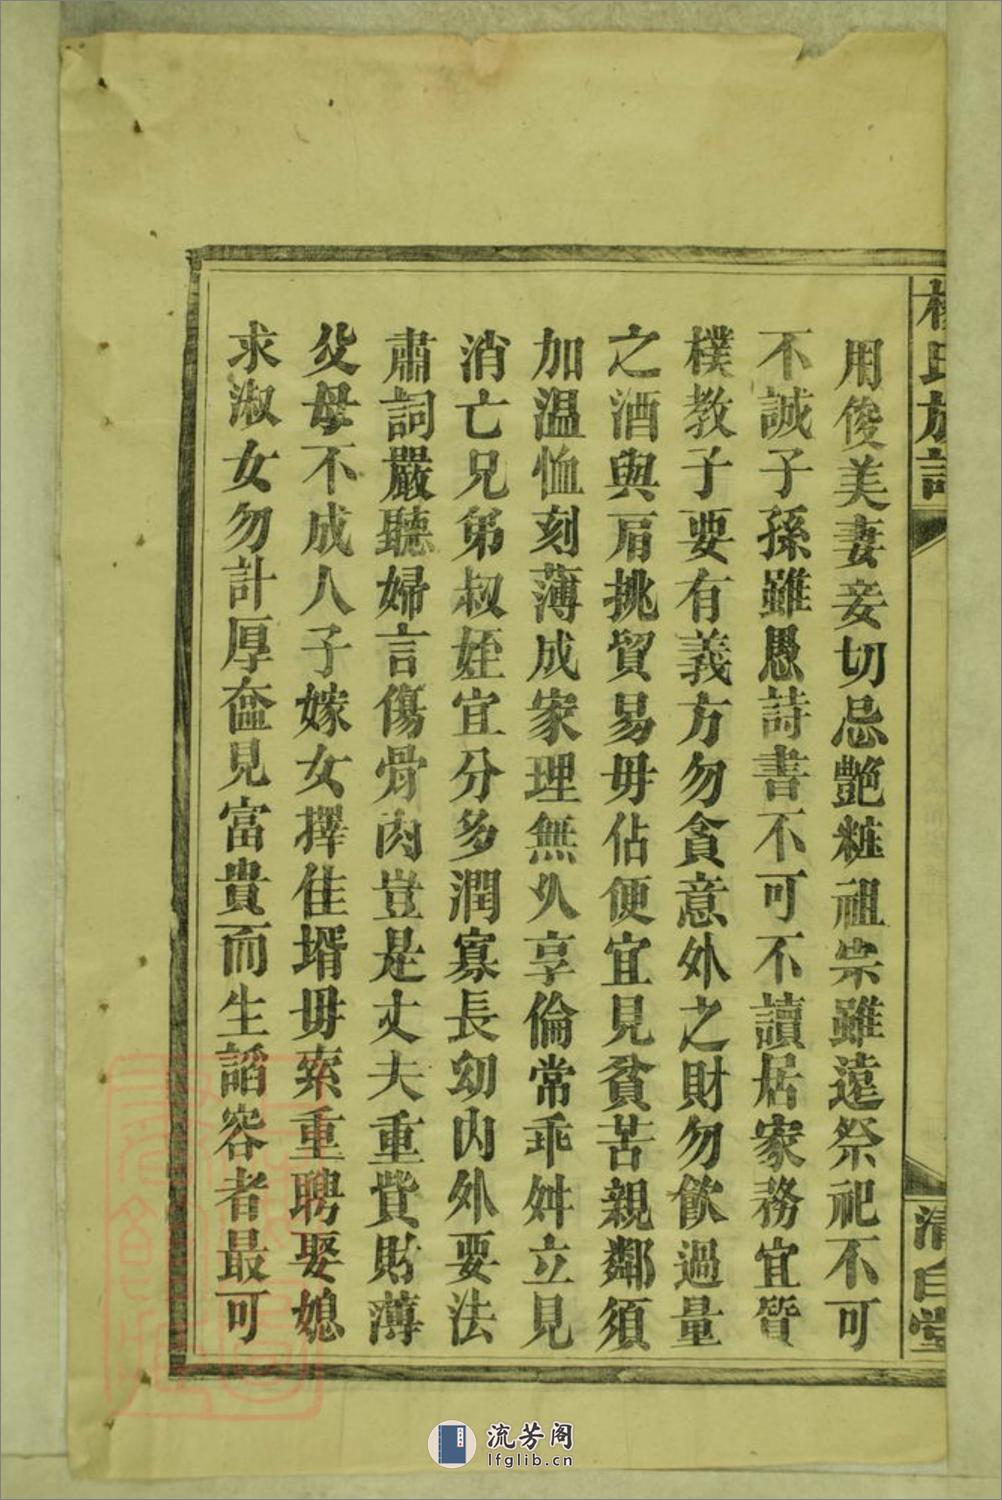 楊氏族譜
清白堂
用俊美妻妾切忌艶粧祖宗雖遠祭祀不可
不誠子孫雖愚詩書不可不讀居家務宜質
樸教子要有義方勿貪意外之財勿飲過量
之酒與肩挑貿易毋佔便宜見貧苦親鄰須
加温恤刻薄成家理無久享倫常乖舛立見
消亡兄弟叔姪宜分多潤寡長幼内外要法
肅詞嚴聽婦言傷骨肉豈是丈夫重貲財薄
父母不成人子嫁女擇佳壻毋索重聘娶媳
求淑女勿計厚奩見富貴而生諂容者最可
流芳阁
lfglib.cn